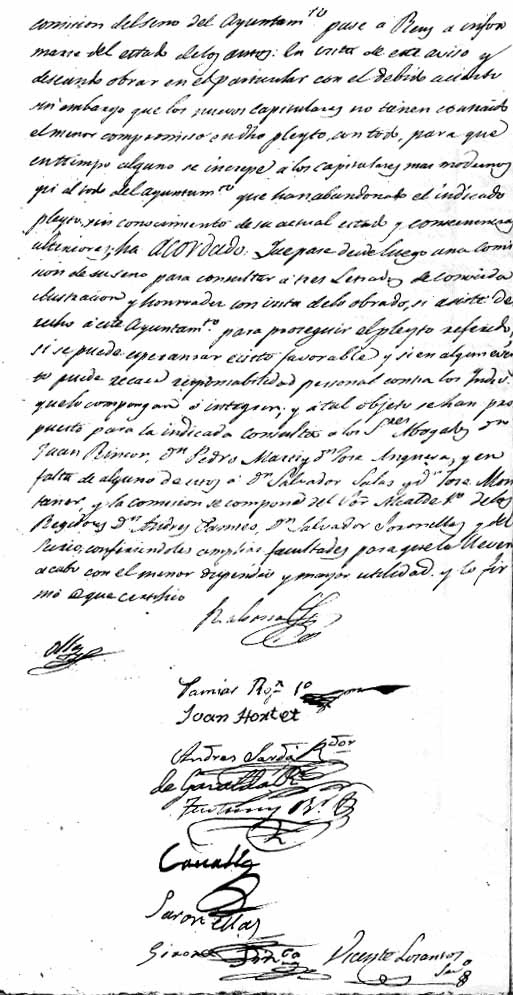 comision del seno del Ayuntam.to pase a Reus a infor
marse del estado de los autos: la vista de este aviso y
deseando obrar en el particular con el debido acierto
sin embargo que los nuevos Capitulares no tienen contraido
el menor compromiso en dho pleyto, con todo, para que
en tiempo alguno se increpe a los capitulares mas modernos
ni al todo del ayuntam.to que han abandonado el indicado
pleyto, sin conocimiento de su actual estado y consecuencias
ulteriores; ha acordado: Que pase desde luego una Comi
sion de su seno para consultar a tres Letrados de conocida
ilustracion y honradez con vista de lo obrado, si asiste de
recho a este Ayuntam.to para proseguir el pleyto referido,
si se puede esperansar exitto favorable y si en algun even
to puede recaer responsabilidad personal contra los Indiv.s
que lo compongan o integren; y a tal objeto se han pro
puesto para la indicada consulta a los S.res Abogados Dn
Juan Rincon, Dn Pedro Martiy Dn Jose Anguera, y en
falta de alguno de estos a Dn Salvador Salas y Dn Jose Mon
taner, y la comision se compondrá del Sor Alcalde 1o de los
Regidores Dn Andres Dn Salvador Soronellas y del
Sindico, confiriendoles amplias facultades para que lo lleven
a cabo con el menor dispendio y mayor utilidad. y lo fir
mó de que certifico

Rabassa

Damian Roj.n 1o
Juan Hortet
Andres Sardá R.dor
de Garalda R.
R.
Canalla
Soronellas
Girona Sindco Vicente Lorenzo
Srio